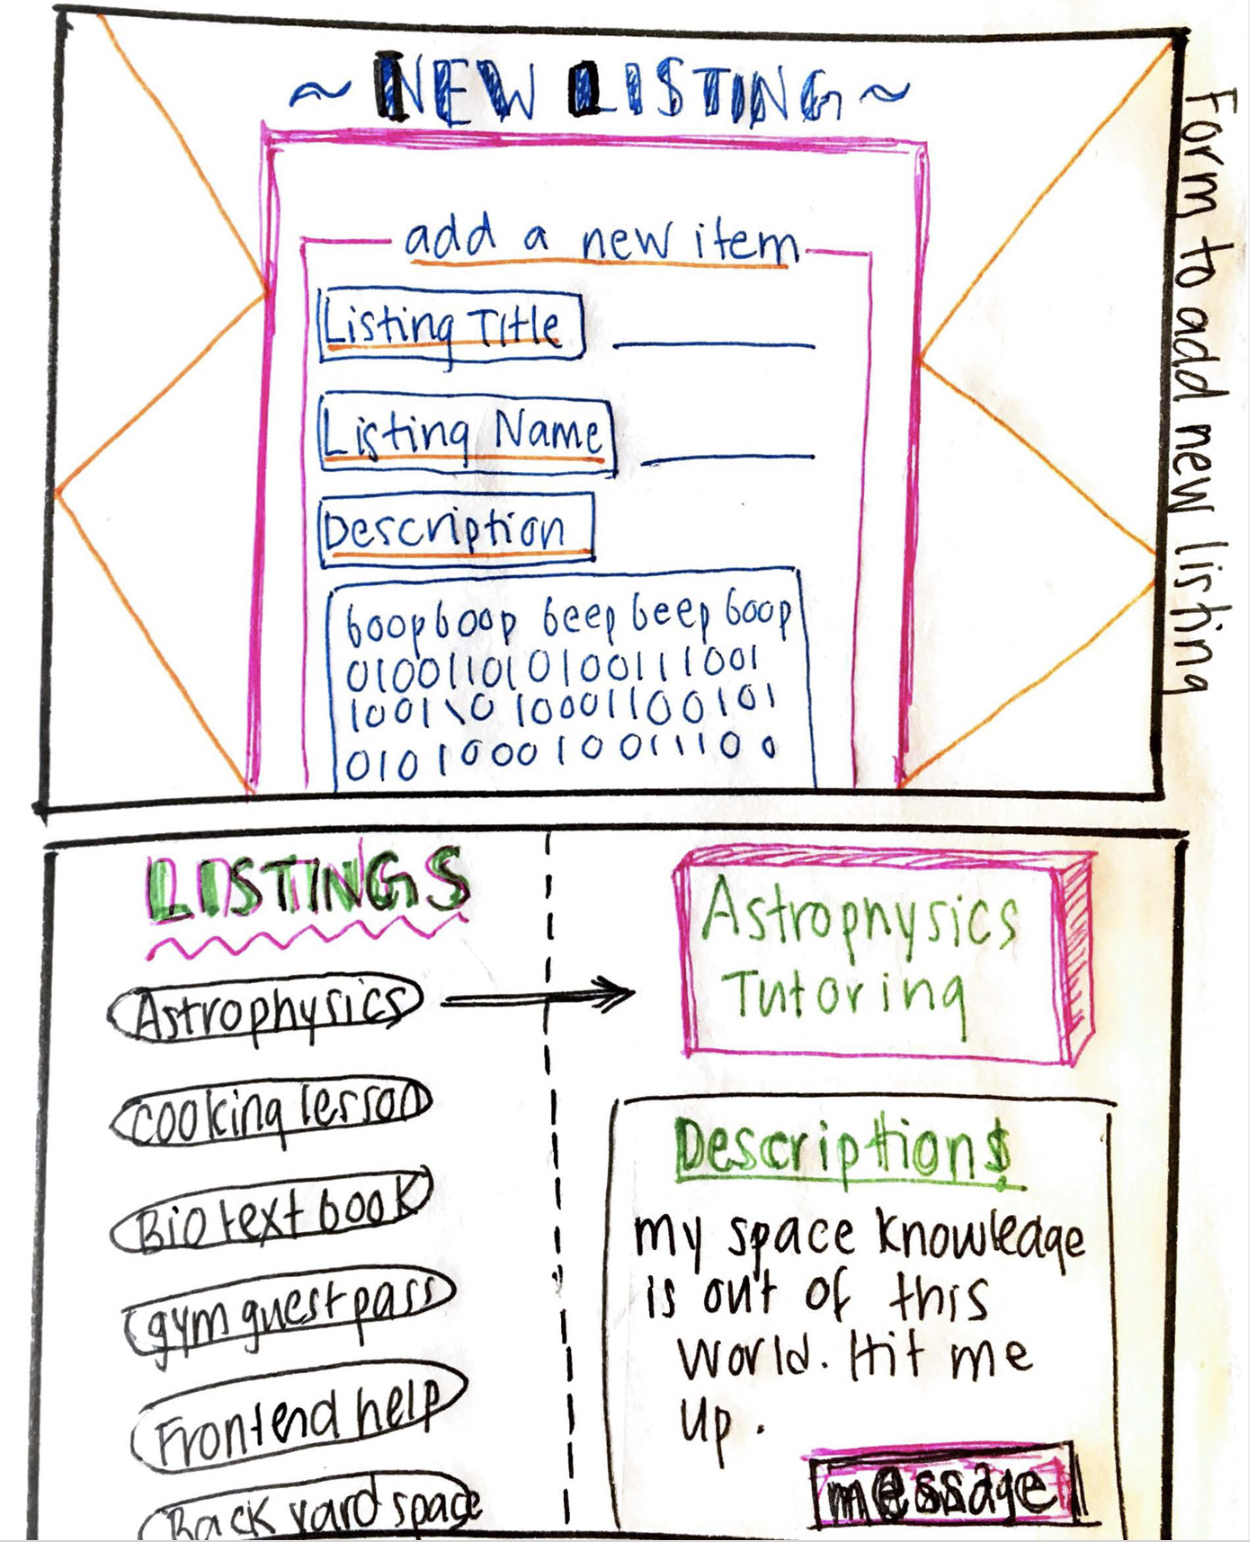 ~ NEW LISTING ~
add a new item
Listing Title
Listing Name
Description
boopboop beep beep boop
0100110101001111001
1001\0 10001100101
0101000100111100
Form to add new listing
LISTINGS
Astrophysics
cooking lesson
Bio textbook
gym guest pass
Frontend help
Back yard space
Astrophysics
Tutoring
Description$
my space knowledge
is out of this
world. Hit me
up.
message